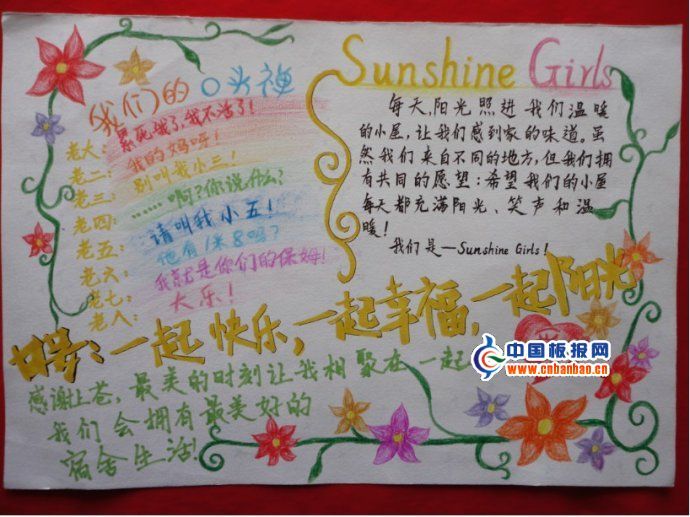 我们的口头禅
老大： 累死俄了，我不活了！
老二： 我的妈呀！
老三： 别叫我小三！
老四： ……啊？你说什么？
老五： 请叫我小五！
老六： 他有1米8吗？
老七： 我就是你们的保姆！
老八： 大乐！
Sunshine Girls
每天，阳光照进我们温暖
的小屋，让我们感到家的味道。虽
然我们来自不同的地方，但我们拥
有共同的愿望：希望我们的小屋
每天都充满阳光、笑声和温
暖！
我们是—Sunshine Girls！
口号：一起快乐，一起幸福，一起阳光
感谢上苍，最美的时刻让我相聚在一起
我们会拥有最美好的
宿舍生活！
中国板报网
www.cnbanbao.cn